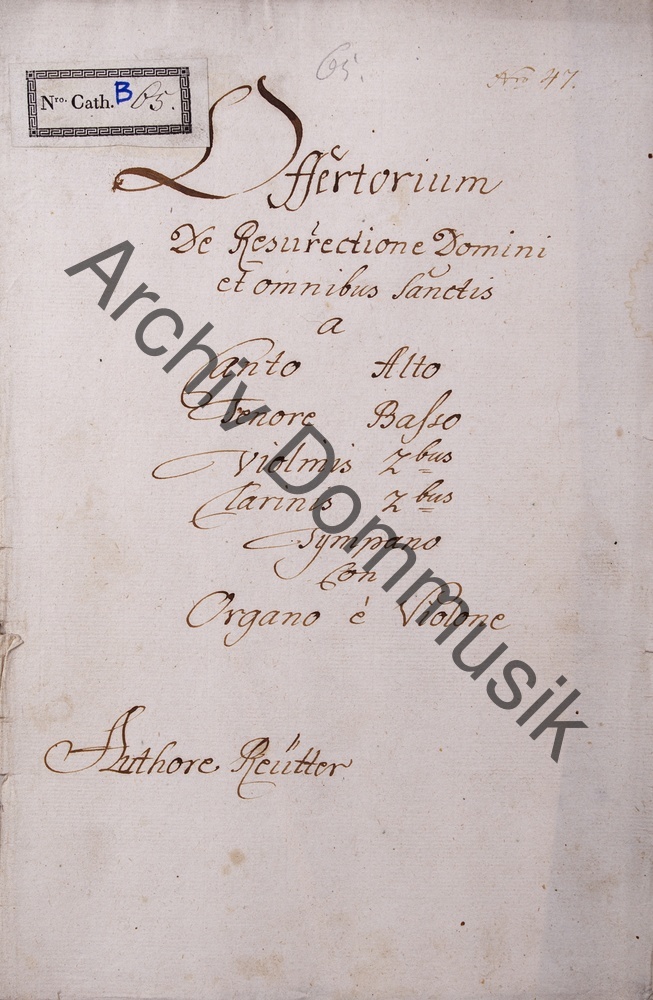 65.
Nro 47.
Nro. Cath. B 65.
Offertorium
De Resurrectione Domini
et omnibus Sanctis
a
Canto Alto
Tenore Basso
Violinis 2bus
Clarinis 2bus
Tympano
Con
Organo è Violone
Authore Reütter
Archiv Dommusik